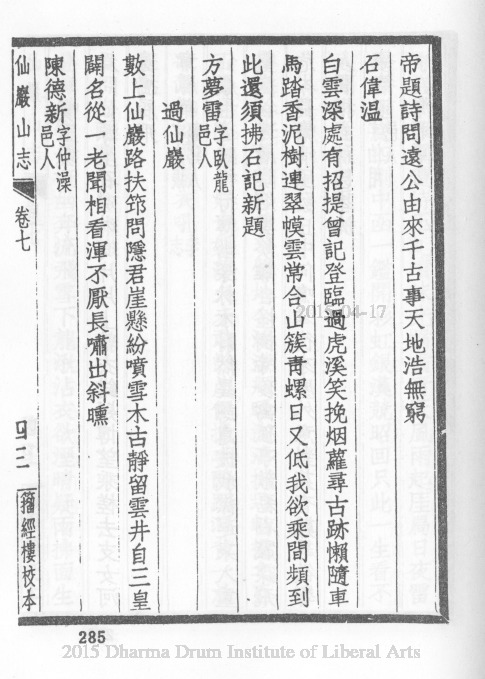 帝題詩問遠公由來千古事天地浩無窮
石偉溫
白雲深處有招提曾記登臨過虎溪笑挽烟蘿尋古跡懶隨車
馬踏香泥樹連翠幙雲常合山簇靑螺日又低我欲乘間頻到
此還須拂石記新題
方夢雷字臥龍邑人
過仙巖
數上仙巖路扶筇問隱君崖懸紛噴雪木古靜留雲井自三皇
闢名從一老聞相看渾不厭長嘯出斜曛
陳德新字仲澡邑人
仙巖山志 卷七 四三 籀經樓校本
285
2015-04-17
2015 Dharma Drum Institute of Liberal Arts